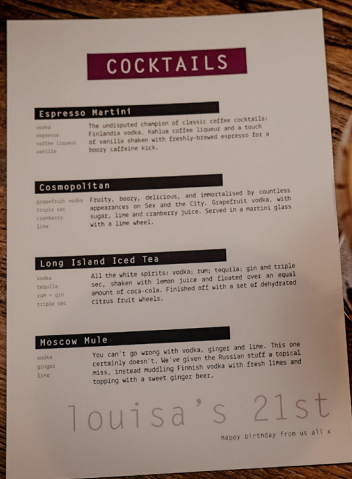 COCKTAILS
Espresso Martini
vodka
espresso
coffee liqueur
vanilla
The undisputed champion of classic coffee cocktails:
Finlandia vodka, Kahlua coffee liqueur and a touch
of vanilla shaken with freshly-brewed espresso for a
boozy caffeine kick.
Cosmopolitan
grapefruit vodka
triple sec
cranberry
lime
Fruity, boozy, delicious, and immortalised by countless
appearances on Sex and the City. Grapefruit vodka, with
sugar, lime and cranberry juice. Served in a martini glass
with a lime wheel.
Long Island Iced Tea
vodka
tequila
rum + gin
triple sec
All the white spirits: vodka; rum; tequila; gin and triple
sec, shaken with lemon juice and floated over an equal
amount of coca-cola. Finished off with a set of dehydrated
citrus fruit wheels.
Moscow Mule
vodka
ginger
lime
You can't go wrong with vodka, ginger and lime. This one
certainly doesn't. We've given the Russian stuff a topical
miss, instead muddling Finnish vodka with fresh limes and
topping with a sweet ginger beer.
louisa's 21st
happy birthday from us all x